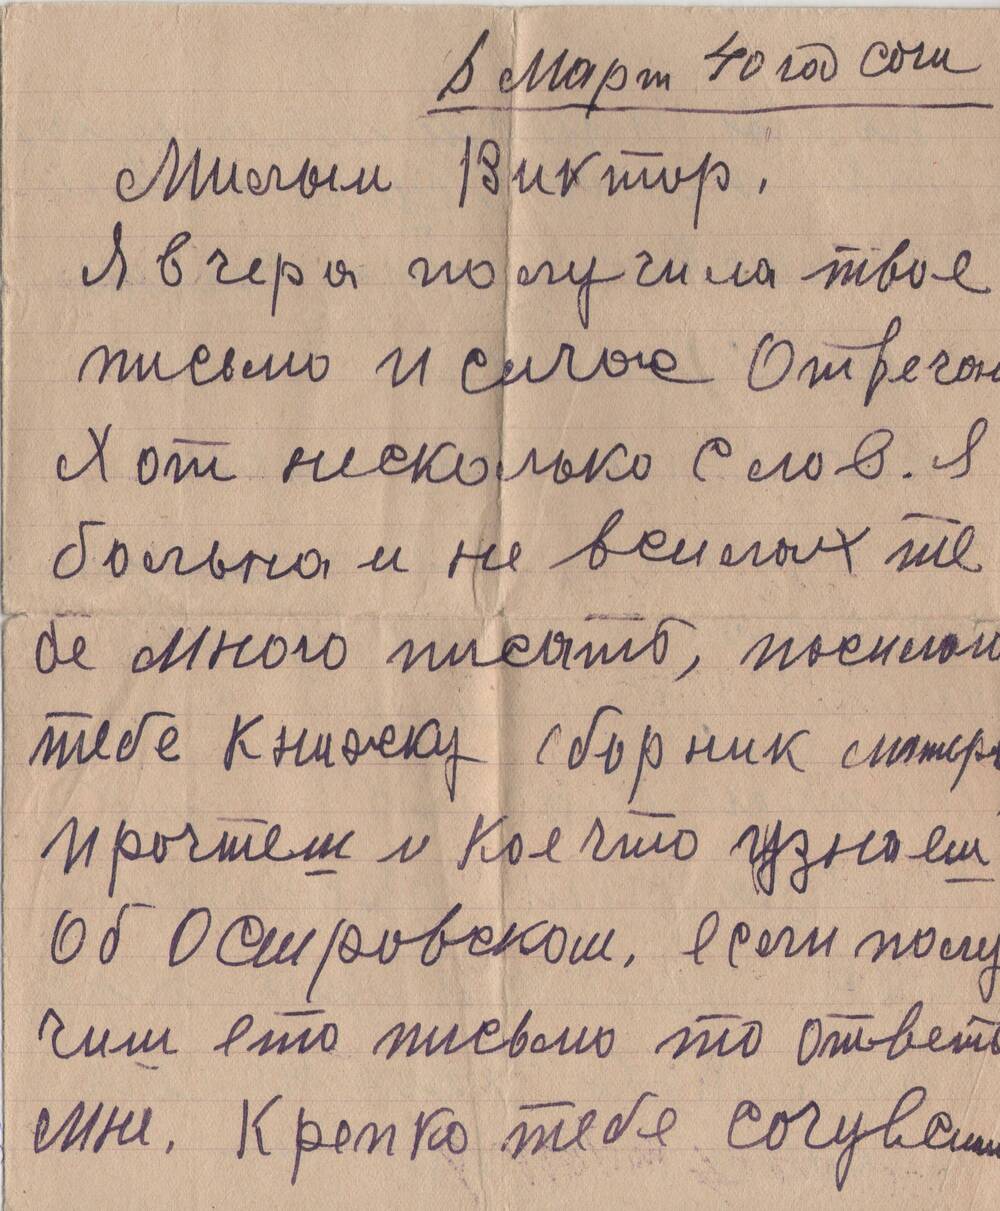 8 Март 40 год Сочи
Милыи Виктор.
Я вчера получила твое
письмо и сичас Отвечаю
Хот несколько слов. Я
больна и не всилах те
бе много писать, посилаю
тебе Книжку сборник
прочтеш и Кое что узнаеш
Об Островском. если полу
чиш ето письмо то Ответь
мне. Крепко тебе сочувс